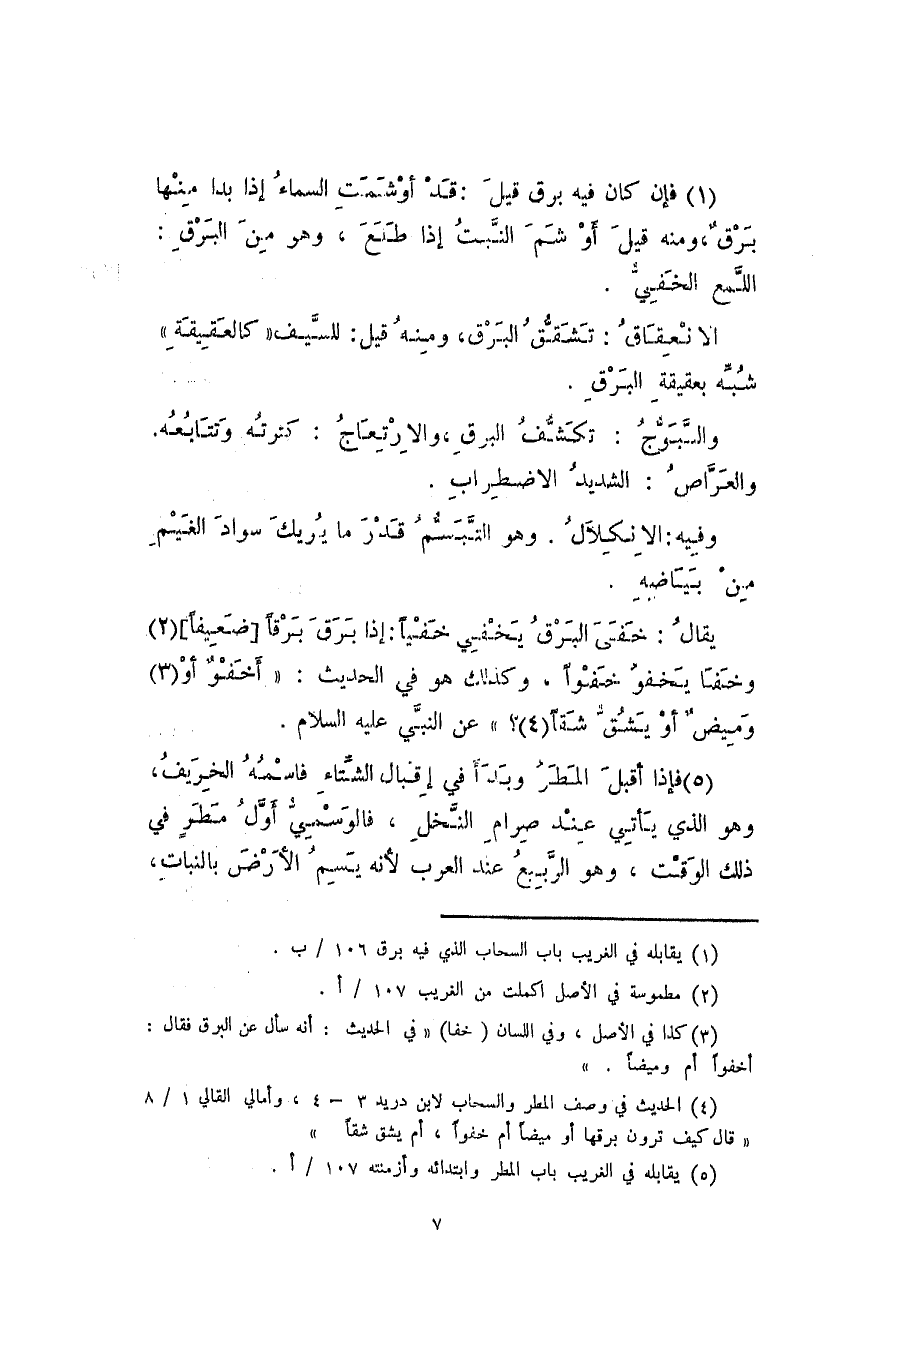 (١) فإن كان فيه برق قيلَ : قَدْ أوْشَمَتِ السماءُ إذا بدا مِنْها
بَرْقٌ، ومنه قيلَ أَوْ شَمَ النَّبتُ إذا طَلَعَ ، وهو مِنَ البَرْقِ :
اللَّمع الخَفِيُّ .
الا نْعِقَاقُ : تَشَقُّقُ البَرْق، ومِنهُ قيل : للسَّيف « كالعَقِيقَةِ »
شُبِّه بعقيقةِ البَرْقِ .
والتَّبَوُّجُ : تكَشُّفُ البرقِ ، والارْتِعَاجُ : كثرتُه وتَتَابُعُه.
والعَرَّاصُ : الشديدُ الاضطِرابِ .
وفيه : الانكِلاَلُ . وهو التَّبَسُّمُ قَدْرَ ما يُريكَ سوادَ الغَيْمِ
مِنْ بَيَاضِهِ .
يقالُ : خَفَىَ البَرْقُ يَخْفِي خَفْياً : إذا بَرَقَ بَرْقاً [ضَعِيفاً](٢)
وخَفَا يَخفوُ خَفْواً . وكذلك هو في الحديث : « أَخَفْوٌ أوْ(٣)
وَمِيضٌ أوْ يَشُقُّ شَقاً(٤)؟ » عن النبَّي عليه السلام .
(٥) فإذا أقبلَ المَطَرُ وبَدَأَ في إقبال الشتَّاءِ فاسْمُهُ الخريفُ،
وهو الذي يأتي عِنْد صِرامِ النَّخلِ ، فالوَسْمِيُّ أوَّلُ مَطَرٍ في
ذلك الوَقْت ، وهو الرَّبِيعُ عند العرب لأنه يَسِمُ الأرْضَ بالنباتِ،
(١) يقابله في الغريب باب السحاب الذي فيه برق ١٠٦ / ب .
(٢) مطموسة في الأصل اكملت من الغريب ١٠٧ / أ .
(٣) كذا في الأصل ، وفي اللسان ( خفا) « في الحديث : أنه سأل عن البرق فقال :
أخفواً أم وميضاً . »
(٤) الحديث في وصف المطر والسحاب لابن دريد ٣ – ٤ ، وأمالي القالي ١ / ٨
« قال كيف ترون برقها أو ميضاً أم خفواً ، أم يشق شقاً »
(٥) يقابله في الغريب باب المطر وابتدائه وأزمنته ١٠٧ / أ .
٧